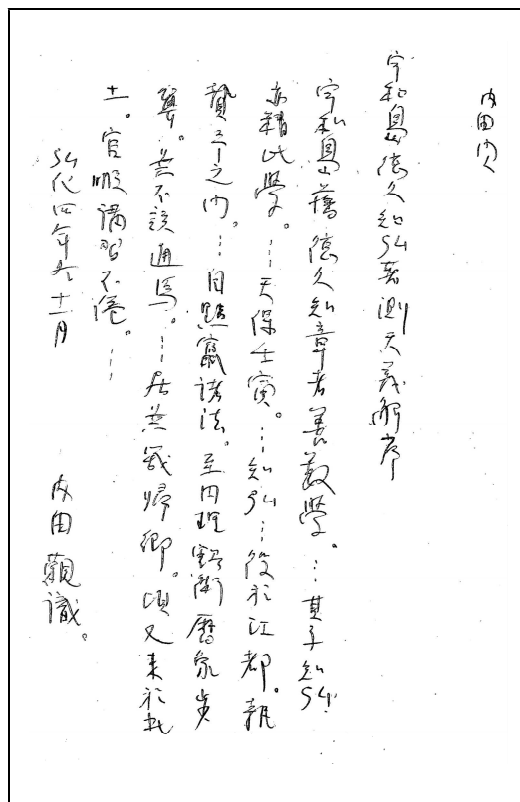 内田
宇和島徳久知弘著測天義解序
宇和島藩徳久知章者善数学。…其子知弘
亦精此学。…天保壬寅。…知弘…役於江都。執
贄予之門。…自點竄諸法。至円理豁術暦象步
算。無不該通焉。…居無幾帰郷。頃又来於此
土。官暇講習不倦。…
弘化四年 十一月
内田觀識。